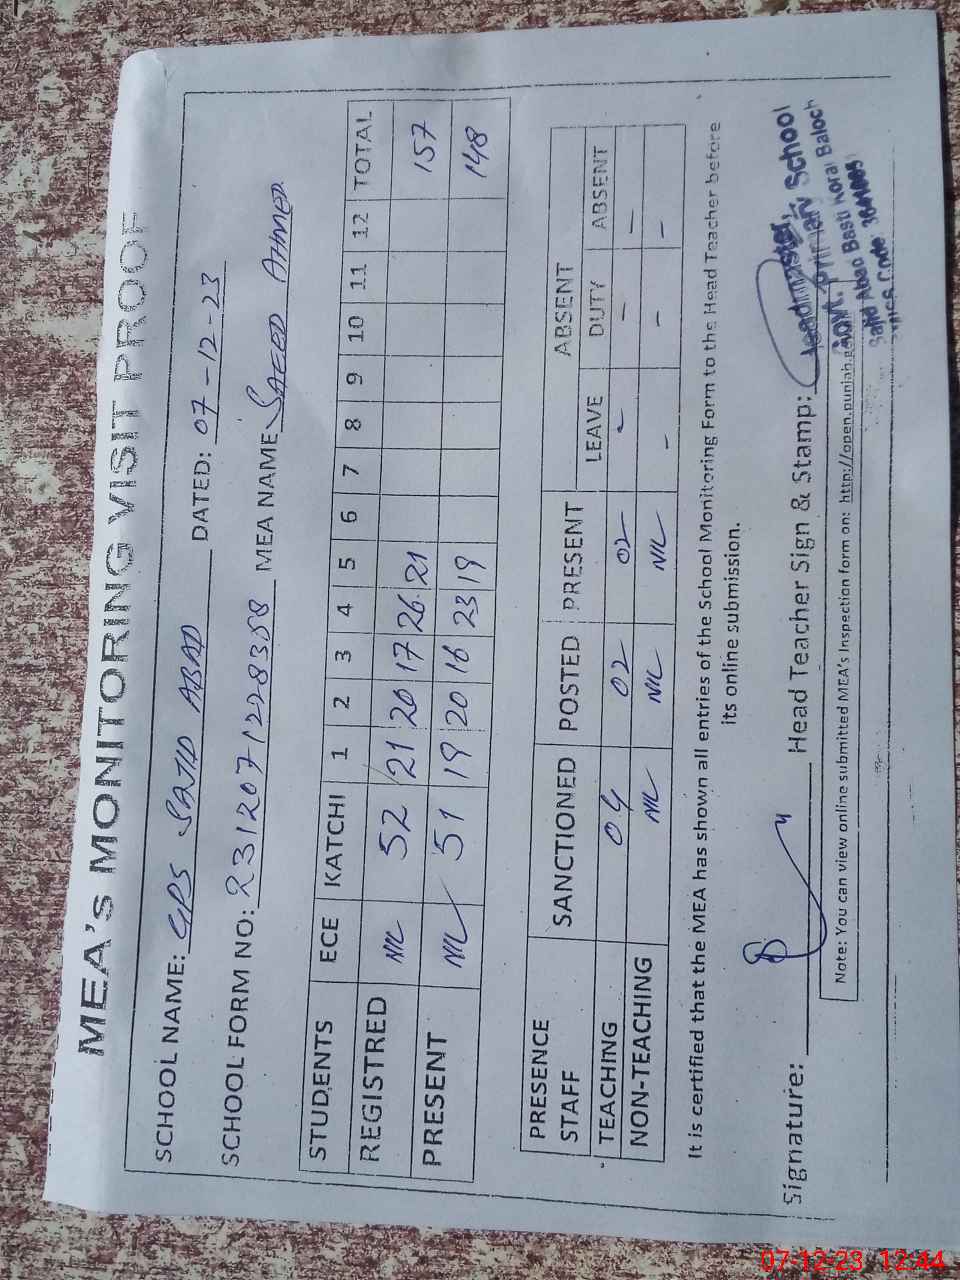 MEA's MONITORING VISIT PROOF
SCHOOL NAME: GPS SAJID ABAD DATED: 07-12-23
SCHOOL FORM NO: 231207122838SB MEA NAME SAEED AHMED
STUDENTS ECE KATCHI 1 2 3 4 5 6 7 8 9 10 11 12 TOTAL
REGISTRED NIL 52 21 20 17 26 21 157
PRESENT NIL 51 19 20 16 23 19 148
PRESENCE ABSENT
STAFF SANCTIONED POSTED PRESENT LEAVE DUTY ABSENT
TEACHING 04 02 02 - - -
NON-TEACHING NIL NIL NIL - - -
It is certified that the MEA has shown all entries of the School Monitoring Form to the Head Teacher before
its online submission.
Signature: Head Teacher Sign & Stamp:
Headmaster,
Govt. Primary School
Sajid Abad Basti Korai Baloch
Code
Note: You can view online submitted MEA's Inspection form on: http://open.punjab.g
07-12-23 12:44